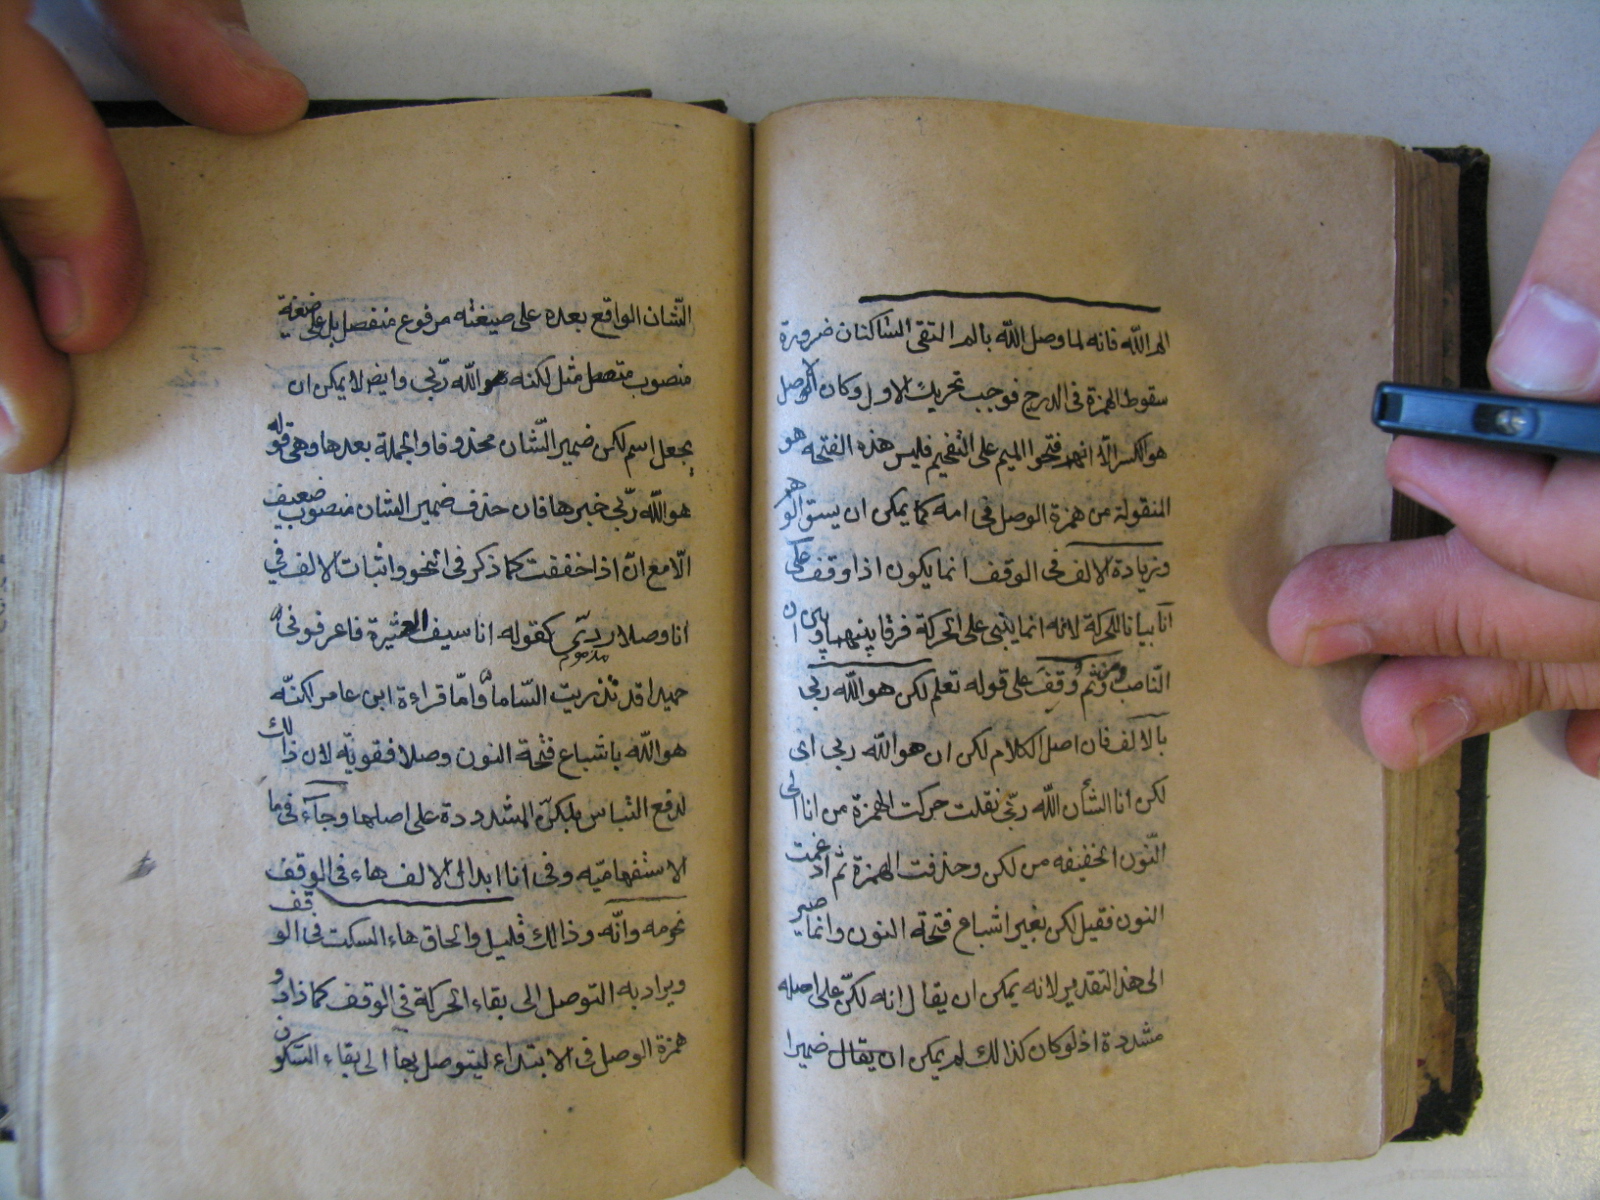 الم الله فانه لما وصل الله بالم التقى الساكنان ضرورة
سقوط الهمزة فى الدرج فوجب تحريك الاول وكان الاصل
هو الكسر الا انهم فتحوا الميم على التفخيم فليس هذه الفتحة هو
المنقولة من همزة الوصل فى امه كما يمكن ان يستوالو
وزيادة الالف فى الوقف انما يكون اذا وقف على
انا بيانا للحركة لانه انما يبنى على الحركة فرقا بينهما وبين ان
النّاصب ومن ثم وقف على قوله تعلم لكن هو الله ربى
بالالف فان اصل الكلام لكن ان هو الله ربى اى
لكن انا الشأن الله ربّى نقلت حركت الهمزة من انا الى
النّون الخفيفه من لكن وحذفت الهمزة ثم ادغمت
النون فقيل لكن بغير اشباع فتحة النون وانما صير
الى هذا التقدير لانه يمكن ان يقال انه لكنّ على اصله
مشددة اذ لو كان كذالك لم يمكن ان يقال ضميرا
الشّان الواقع بعده على صيغته مرفوع منفصل بل على صيغة
منصوب متصل مثل لكنه هو الله ربّى وايضا لا يمكن ان
يجعل اسم لكن ضمير الشّان محذوفا والجملة بعدها وهى قوله
هو الله ربّى خبرها فان حذف ضمير الشان منصوب ضعيف
الّا مع انّ اذا خففت كما ذكر فى النحو واثبات الالف فى
انا وصلا ردىّ كقوله انا سيف العشيرة فاعرفونى
مذموم
حميدا قد تذريت السّاما وامّا قراءة ابن عامر لكنّه
هو الله باشباع فتحة النون وصلا فقويّه لان ذالك
لدفع التباس بلكنّ المشددة على اصلها وجآء فى ما
الاستفهاميّه وفى انا ابدال الالف هاء فى الوقف
نحومه وانّه وذالك قليل والحاق هاء السكت فى الوقف
ويراد به التوصل الى بقاء الحركة فى الوقف كما ذادو
همزة الوصل فى الابتداء ليتوصل بها الى بقاء السّكون